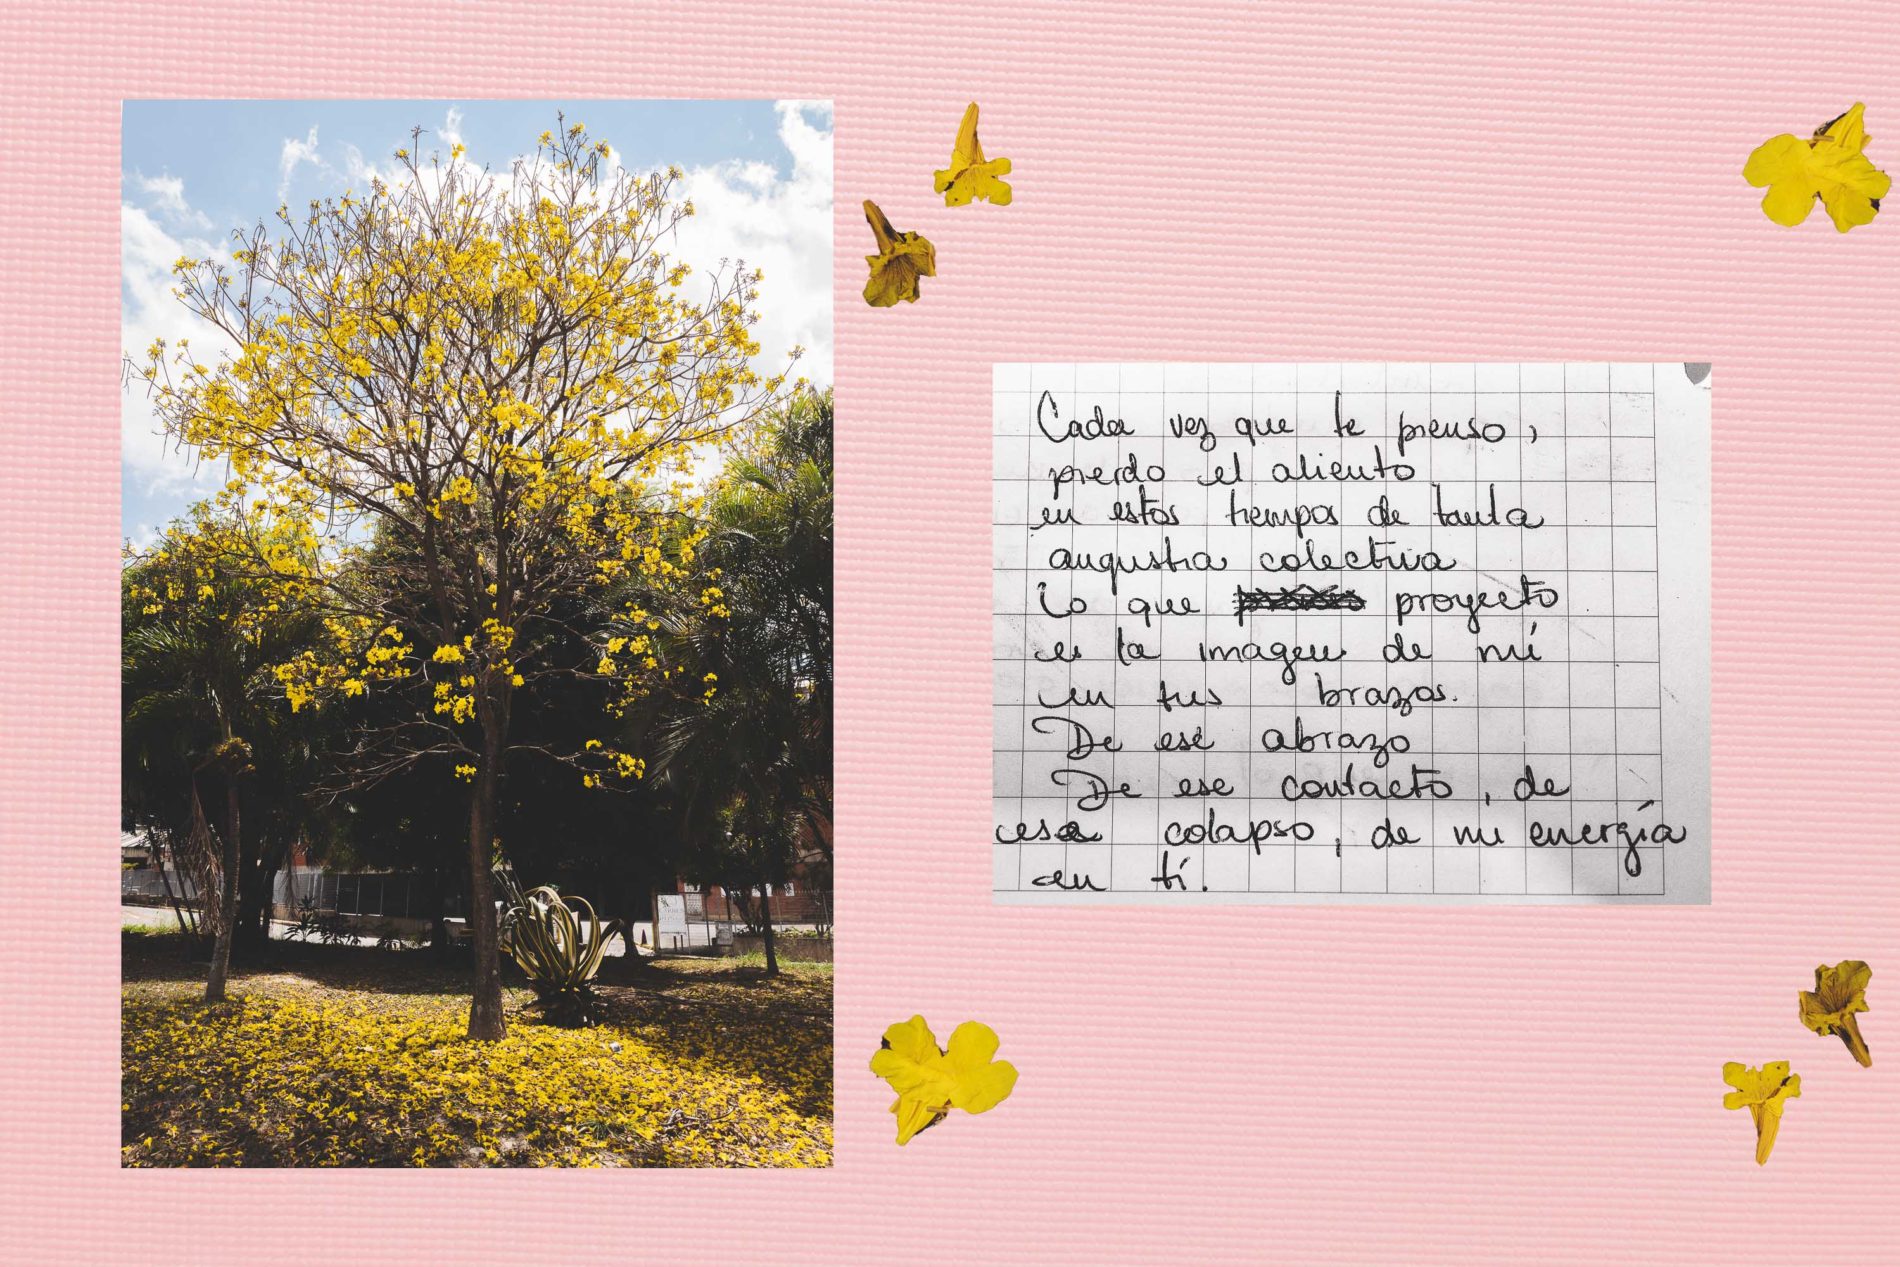 Cada vez que te pienso,
pierdo el aliento
en estos tiempos de tanta
angustia colectiva
Lo que proyecto
es la imagen de mí
en tus brazos.
De ese abrazo
De ese contacto, de
ese colapso, de mi energía
en tí.